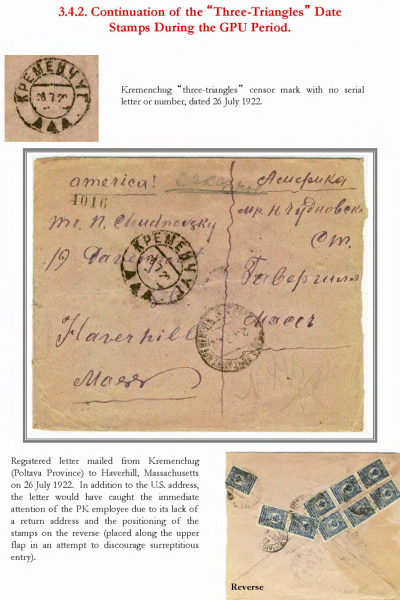 3.4.2. Continuation of the “Three-Triangles” Date
Stamps During the GPU Period.
КРЕМЕНЧУГ
26 7 22
Kremenchug “three-triangles” censor mark with no serial
letter or number, dated 26 July 1922.
america!
Америка
4016
мр. Н. Чудновск
Mr. N. Chudnovsky
КРЕМЕНЧУГ
Ст.
19 Davenport
Гавергилл
Haverhill
Массъ
Mass
Registered letter mailed from Kremenchug
(Poltava Province) to Haverhill, Massachusetts
on 26 July 1922. In addition to the U.S. address,
the letter would have caught the immediate
attention of the PK employee due to its lack of
a return address and the positioning of the
stamps on the reverse (placed along the upper
flap in an attempt to discourage surreptitious
entry).
Reverse